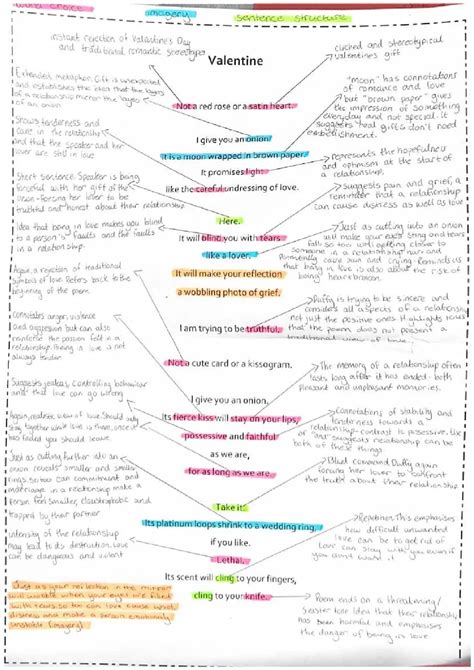 word choice
imagery
sentence structure
instant rejection of Valentine's Day
and traditional romantic stereotypes
cliched and stereotypical
valentine's gift
Valentine
Extended metaphor. Gift is unexpected
and establishes the idea that the layers
of a relationship mirror the layers
of an onion.
"moon" has connotations
of romance and love
but "brown paper" gives
the impression of something
everyday and not special. It
suggests real gifts don't need
Not a red rose or a satin heart.
I give you an onion.
It is a moon wrapped in brown paper.
It promises light
like the careful undressing of love.
Shows tenderness and
care in the relationship
and that the speaker and her
lover are still in love
represents the hopefulness
and optimism at the start of
a relationship.
Short sentence. Speaker is being
forceful with her gift of the
onion - forcing her lover to be
truthful and honest about their relationship
Suggests pain and grief, a
reminder that a relationship
can cause distress as well as love
Here.
It will blind you with tears
like a lover.
It will make your reflection
a wobbling photo of grief.
Idea that being in love makes you blind
to a person's faults and the faults
in a relationship.
Just as cutting into an onion
will make your eyes sting and tears
fall so too will getting closer to
someone in a relationship
that being in love is also about the risk of
being heartbroken.
Again, a rejection of traditional
symbols of love. Refers back to the
beginning of the poem
Duffy is trying to be sincere and
consider all aspects of a relationship
not just the positive ones. Highlights
that the poem does not present a
traditional view of love
I am trying to be truthful.
Connotates anger, violence
and aggression but can also
reinforce the passion felt in a
relationship. Being in love is not
always tender.
Not a cute card or a kissogram.
The memory of a relationship often
lasts long after it has ended - both
pleasant and unpleasant memories.
I give you an onion.
Its fierce kiss will stay on your lips,
possessive and faithful
as we are,
for as long as we are.
Suggests jealous, controlling behaviour
and that love can go wrong
Again, realistic view of love. Should only
stay together while love is there, once it
has faded you should leave.
Connotations of stability and
tenderness towards a
relationship - contrast to possessive.
"and" suggests relationship can be
both of these things.
Blunt command. Duffy again
forcing her lover to confront
the truth about their relationship
Just as cutting further into an
onion reveals smaller and smaller
rings, so too can commitment and
marriage in a relationship make a
person feel smaller, claustrophobic and
trapped by their partner
Take it.
Its platinum loops shrink to a wedding ring,
if you like.
Lethal.
Its scent will cling to your fingers,
cling to your knife.
Repetition. This emphasises
how difficult unwanted
love can be to get rid of
Love can stay with you even if
you don't want it.
Intensity of the relationship
may lead to destruction. Love
can be dangerous and violent
Just as your reflection in the mirror
will wobble when your eyes are filled
with tears, so too can love cause
distress and make a person emotionally
unstable (imagery)
Poem ends on a threatening/
sinister tone. Idea that their relationship
has been harmful and emphasises
the danger of being in love